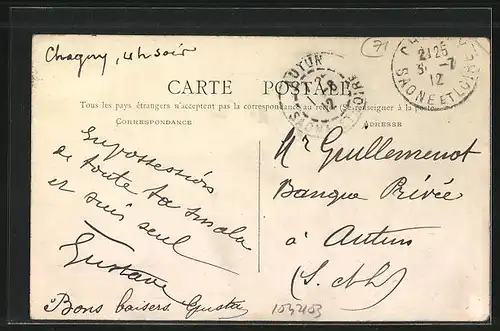 Chagny, 4h soir
71
21 25
31 - 7
12
SAONE ET LOIRE
AUTUN
12
CARTE POSTALE
Tous les pays étrangers n'acceptent pas la correspondance au recto (Se renseigner à la poste
CORRESPONDANCE
ADRESSE
En possession
de toute ta smala
et suis seul
Gustave
Bons baisers Gusta
Mr Guillemenot
Banque Privée
à Autun
(S. &L)
1032103